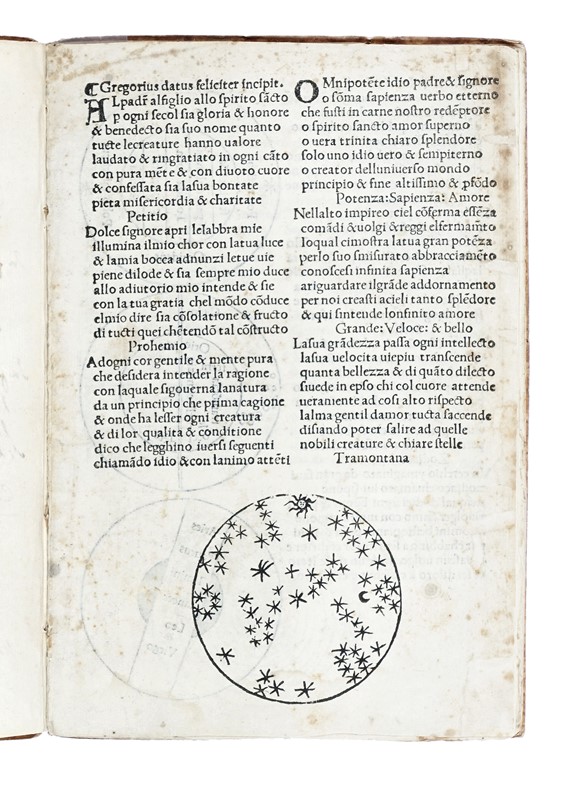 Gregorius datus feliciter incipit.
ALpadr̄ alfiglio allo spirito sācto
p ogni secol sia gloria & honore
& benedecto sia suo nome quanto
tucte lecreature hanno ualore
laudato & ringratiato in ogni cāto
con pura mēte & con diuoto cuore
& confessata sia lasua bontate
pieta misericordia & charitate
Petitio
Dolce signore apri lelabbra mie
illumina ilmio chor con latua luce
& lamia bocca adnunzi letue uie
piene dilode & sia sempre mio duce
allo adiutorio mio intende & sie
con la tua gratia chel mōdo cōduce
elmio dire sia cōsolatione & fructo
di tucti quei chētendō tal cōstructo
Prohemio
Adogni cor gentile & mente pura
che desidera intender la ragione
con laquale sigouerna lanatura
da un principio che prima cagione
& onde ha lesser ogni creatura
& di lor qualita & conditione
dico che legghino iuersi seguenti
chiamādo idio & con lanimo attēti
OMnipotēte idio padre & signore
o sōma sapienza uerbo etterno
che fusti in carne nostro redēptore
o spirito sancto amor superno
o uera trinita chiaro splendore
solo uno idio uero & sempiterno
o creator delluniuerso mondo
principio & fine altissimo & ꝓfōdo
Potenza: Sapienza: Amore
Nellalto impireo ciel cōferma essēza
comādi & uolgi & reggi elfermamēto
loqual cimostra latua gran potēza
perlo suo smisurato abbracciamēto
conoscesi infinita sapienza
ariguardare ilgrāde addornamento
per noi creasti acieli tanto splēdore
& qui sintende lonfinito amore
Grande: Veloce: & bello
Lasua grādezza passa ogni intellecto
lasua uelocita uiepiu transcende
quanta bellezza & di quāto dilecto
siuede in epso chi col cuore attende
ueramente ad cosi alto rispecto
lalma gentil damor tucta saccende
disiando poter salire ad quelle
nobili creature & chiare stelle
Tramontana